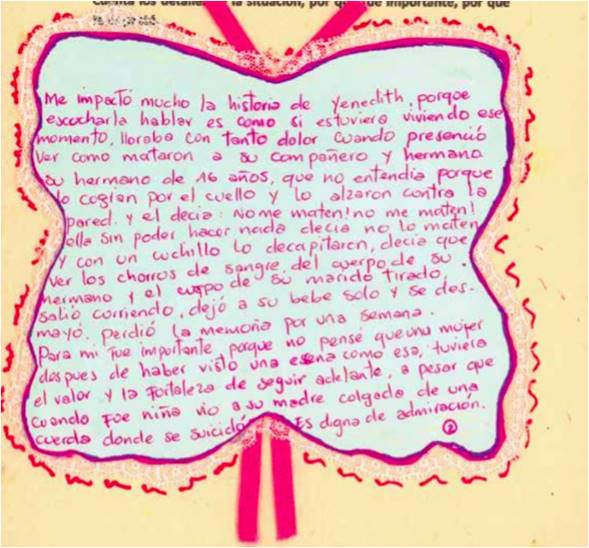 Cuenta los detalles la situación, por qué fue importante, por qué
Me impactó mucho la historia de Yenedith, porque
escucharla hablar es como si estuviera viviendo ese
momento, lloraba con tanto dolor cuando presenció
ver como mataron a su compañero y hermano
su hermano de 16 años, que no entendia porque
lo cogian por el cuello y lo alzaron contra la
pared. y el decia: No me maten! no me maten!
ella sin poder hacer nada decia no lo maten
y con un cuchillo lo decapitaron, decia que
ver los chorros de sangre del cuerpo de su
hermano y el cuerpo de su marido tirado,
salio corriendo, dejó a su bebe solo y se des-
mayó. perdió la memoria por una semana.
Para mi fue importante porque no pensé que una mujer
despues de haber visto una esena como esa, tuviera
el valor y la fortaleza de seguir adelante, a pesar que
cuando fue niña vio a su madre colgada de una
cuerda donde se suicidó. Es digna de admiración.